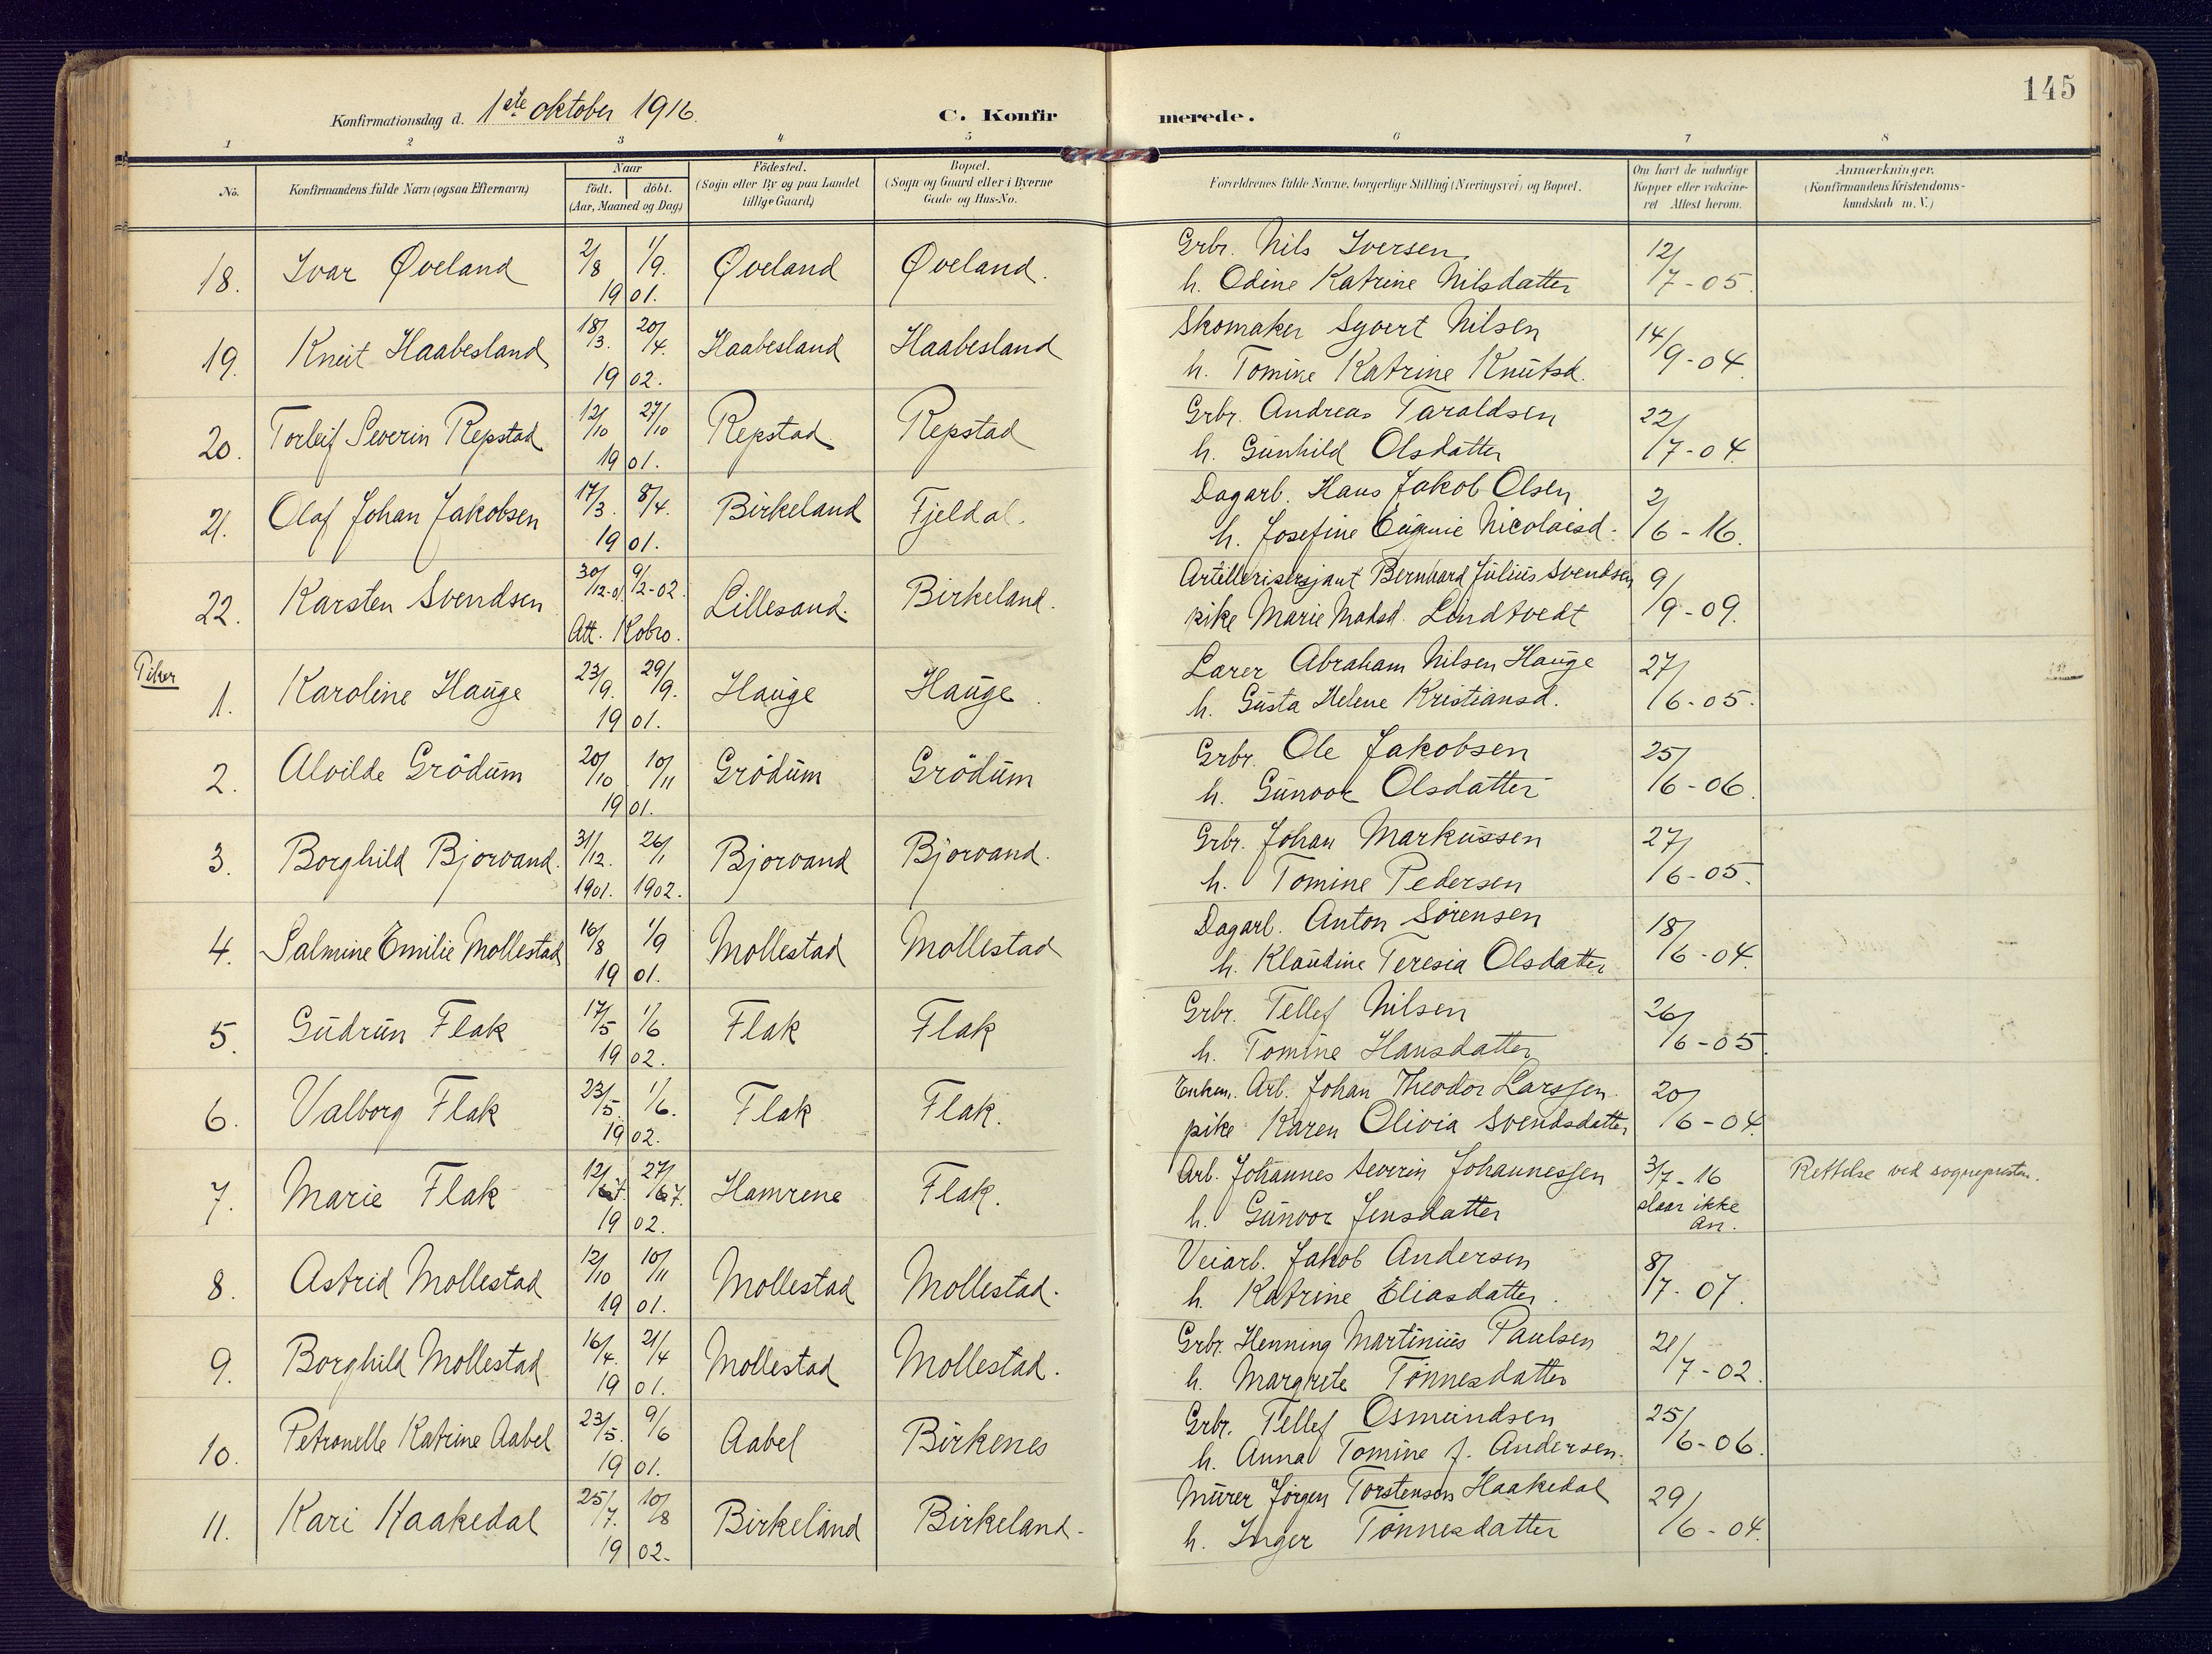 145
Konfirmationsdag d. 1ste oktober 1916.
C. Konfirmerede.
1 2 3 4 5 6 7 8
No.
Konfirmandens fulde Navn (ogsaa Efternavn)
Naar
födt. döbt.
(Aar, Maaned og Dag)
Födested.
(Sogn eller By og paa Landet
tillige Gaard)
Bopæl.
(Sogn og Gaard eller i Byerne
Gade og Hus-No.
Forældrenes fulde Navne, borgerlige Stilling (Næringsvei) og Bopæl.
Om havt de naturlige
Kopper eller vakcine-
ret Attest herom.
Anmærkninger.
(Konfirmandens Kristendoms-
kundskab m. V.)
18. Ivar Øveland 2/8 1/9. 1901. Øveland Øveland.
Grbr. Nils Iversen
h. Odine Katrine Nilsdatter
12/7-05.
19. Knut Haabesland 18/3. 20/4. 1902. Haabesland Haabesland
Skomaker Syvert Nilsen
h. Tomine Katrine Knutsd.
14/9-04.
20. Torleif Severin Repstad 12/10 27/10 1901. Repstad Repstad
Grbr. Andreas Taraldsen
h. Gunhild Olsdatter
22/7-04.
21. Olaf Johan Jakobsen 17/3. 8/4. 1901. Birkeland Fjeldal.
Dagarb. Hans Jakob Olsen
h. Josefine Eugenie Nicolaisd.
2/6-16.
22. Karsten Svendsen 30/12-01. 9/2-02. Att. Kobro. Lillesand. Birkeland.
Artillerisersjant Bernhard Julius Svendsen
pike Marie Madsd. Lindtvedt
9/9-09.
Piker
1. Karoline Hauge 23/9. 29/9. 1901. Hauge Hauge.
Lærer Abraham Nilsen Hauge
h. Gusta Helene Kristiansd.
27/6-05.
2. Alvilde Grödum 20/10 10/11 1901. Grödum Grödum
Grbr. Ole Jakobsen
h. Gunvor Olsdatter
25/6-06.
3. Borghild Bjorvand. 31/12. 26/1 1901. 1902. Bjorvand Bjorvand.
Grbr. Johan Markussen
h. Tomine Pedersen
27/6-05.
4. Salmine Emilie Mollestad 16/8 1/9 1901. Mollestad Mollestad
Dagarb. Anton Sörensen
h. Klaudine Teresia Olsdatter
18/6-04.
5. Gudrun Flak 17/5 1/6 1902. Flak Flak
Grbr. Tellef Nilsen
h. Tomine Hansdatter
26/6-05.
6. Valborg Flak 23/5. 1/6. 1902. Flak Flak.
Enkem. Arb. Johan Theodor Larssen.
pike Karen Olivia Svendsdatter
20/6-04.
7. Marie Flak 12/7. 27/7. 1902. Hamrene Flak.
Arb. Johannes Severin Johannessen
h. Gunvor Jensdatter
3/7-16
slaar ikke
an.
Rettelse ved sognepresten.
8. Astrid Mollestad 12/10 10/11 1901. Mollestad Mollestad.
Veiarb. Jakob Andersen
h. Katrine Eliasdatter.
8/7-07.
9. Borghild Mollestad 16/4. 21/4 1901. Mollestad Mollestad.
Grbr. Henning Martinius Paulsen
h. Margrete Tönnesdatter
21/7-02.
10. Petronelle Katrine Aabel 23/5. 9/6 1901. Aabel Birkenes
Grbr. Tellef Osmundsen
h. Anna Tomine f. Andersen.
25/6-06.
11. Kari Haakedal 25/7. 10/8 1902. Birkeland Birkeland.
Murer Jörgen Torstensen Haakedal
h. Inger Tönnesdatter
29/6-04.